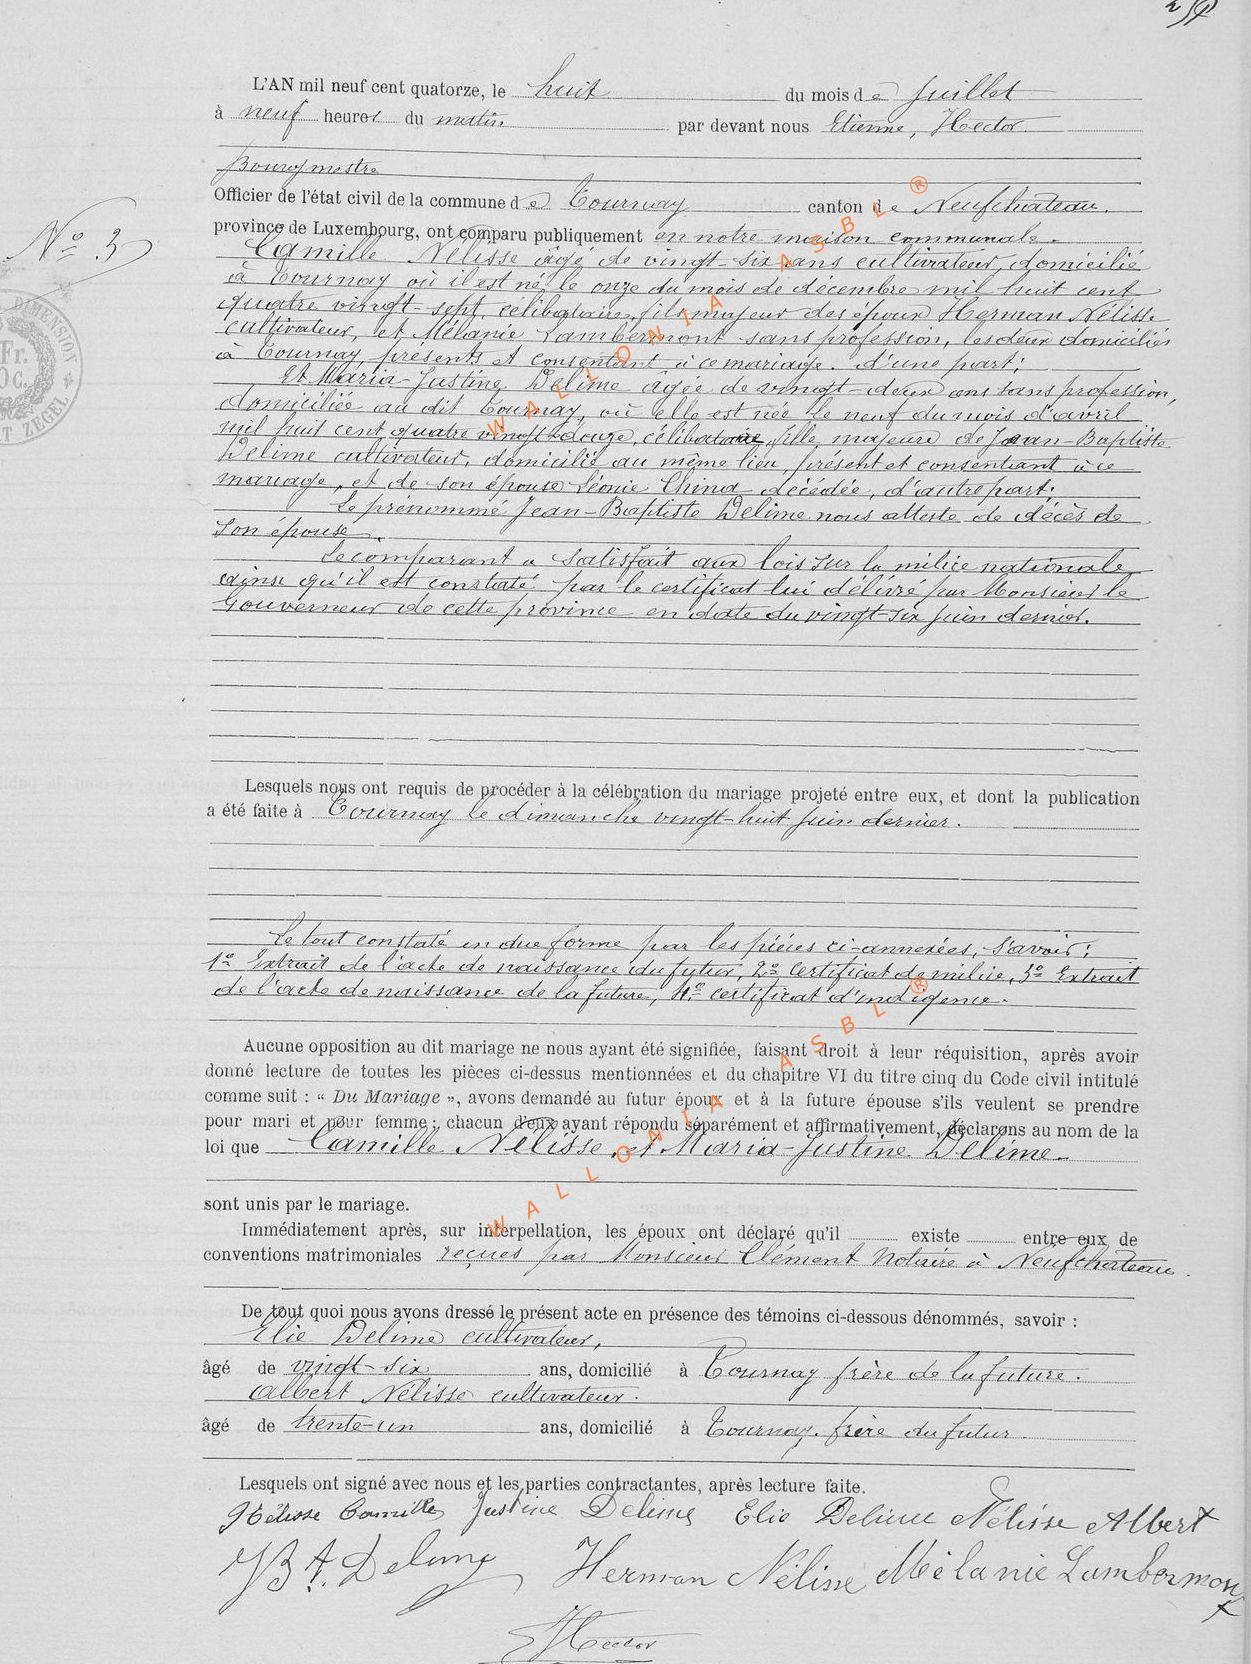 L'AN mil neuf cent quatorze, le huit du mois de Juillet
à neuf heures du matin par devant nous Etienne, Hector
Bourgmestre
Officier de l'état civil de la commune de Tournay canton de Neufchâteau.
province de Luxembourg, ont comparu publiquement en notre maison communale.
N° 3
Camille Nélisse âgé de vingt-six ans cultivateur, domicilié
à Tournay où il est né le onze du mois de décembre mil huit cent
quatre vingt-sept, célibataire, fils majeur des époux Herman Nélisse
cultivateur, et Mélanie Lambermont sans profession, les deux domiciliés
à Tournay présents et consentant à ce mariage. d'une part;
Et Maria-Justine Delime âgée de vingt-deux ans sans profession,
domiciliée au dit Tournay, où elle est née le neuf du mois d'avril
mil huit cent quatre vingt-douze, célibataire, fille majeure de Jean-Baptiste
Delime cultivateur, domicilié au même lieu, présent et consentant à ce
mariage, et de son épouse Léonie China décédée, d'autre part;
Le prénommé Jean-Baptiste Delime nous atteste de décès de
son épouse.
Le comparant a satisfait aux lois sur la milice nationale
ainsi qu'il est constaté par le certificat lui délivré par Monsieur le
Gouverneur de cette province en date du vingt-six juin dernier.
Lesquels nous ont requis de procéder à la célébration du mariage projeté entre eux, et dont la publication
a été faite à Tournay le dimanche vingt-huit juin dernier.
Le tout constaté en due forme par les pièces ci-annexées, savoir:
1° Extrait de l'acte de naissance du futur, 2° certificat de milice, 3° Extrait
de l'acte de naissance de la future, 4° certificat d'indigence.
Aucune opposition au dit mariage ne nous ayant été signifiée, faisant droit à leur réquisition, après avoir
donné lecture de toutes les pièces ci-dessus mentionnées et du chapitre VI du titre cinq du Code civil intitulé
comme suit : « Du Mariage », avons demandé au futur époux et à la future épouse s'ils veulent se prendre
pour mari et pour femme; chacun d'eux ayant répondu séparément et affirmativement, déclarons au nom de la
loi que Camille Nélisse, et Maria-Justine Delime.
sont unis par le mariage.
Immédiatement après, sur interpellation, les époux ont déclaré qu'il existe entre eux de
conventions matrimoniales reçues par Monsieur Clément Notaire à Neufchâteau.
De tout quoi nous avons dressé le présent acte en présence des témoins ci-dessous dénommés, savoir :
Elie Delime cultivateur,
âgé de vingt-six ans, domicilié à Tournay frère de la future.
Albert Nélisse cultivateur.
âgé de trente-un ans, domicilié à Tournay. frère du futur.
Lesquels ont signé avec nous et les parties contractantes, après lecture faite.
Nélisse Camille Justine Delime Elie Delime Nélisse Albert
JBt. Delime Herman Nélisse Mélanie Lambermont
Hector
WALLONIA ASBL ®
WALLONIA ASBL ®